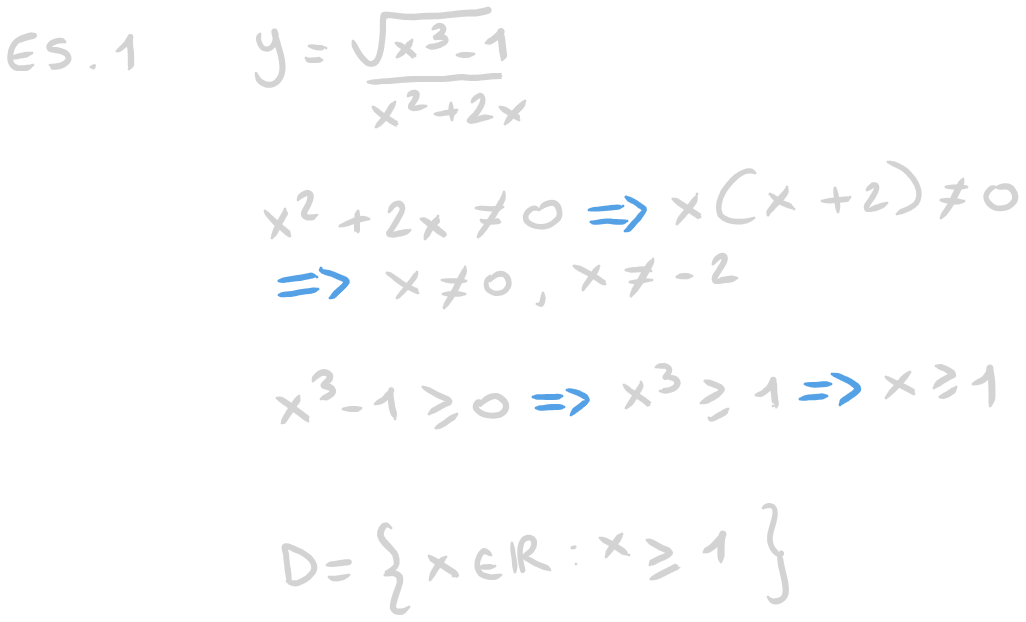 ES. 1 y = √(x³-1) / (x²+2x)
x² + 2x ≠ 0 ⇒ x(x + 2) ≠ 0
⇒ x ≠ 0 , x ≠ -2
x³ - 1 ⩾ 0 ⇒ x³ ⩾ 1 ⇒ x ⩾ 1
D = { x ∈ ℝ : x ⩾ 1 }